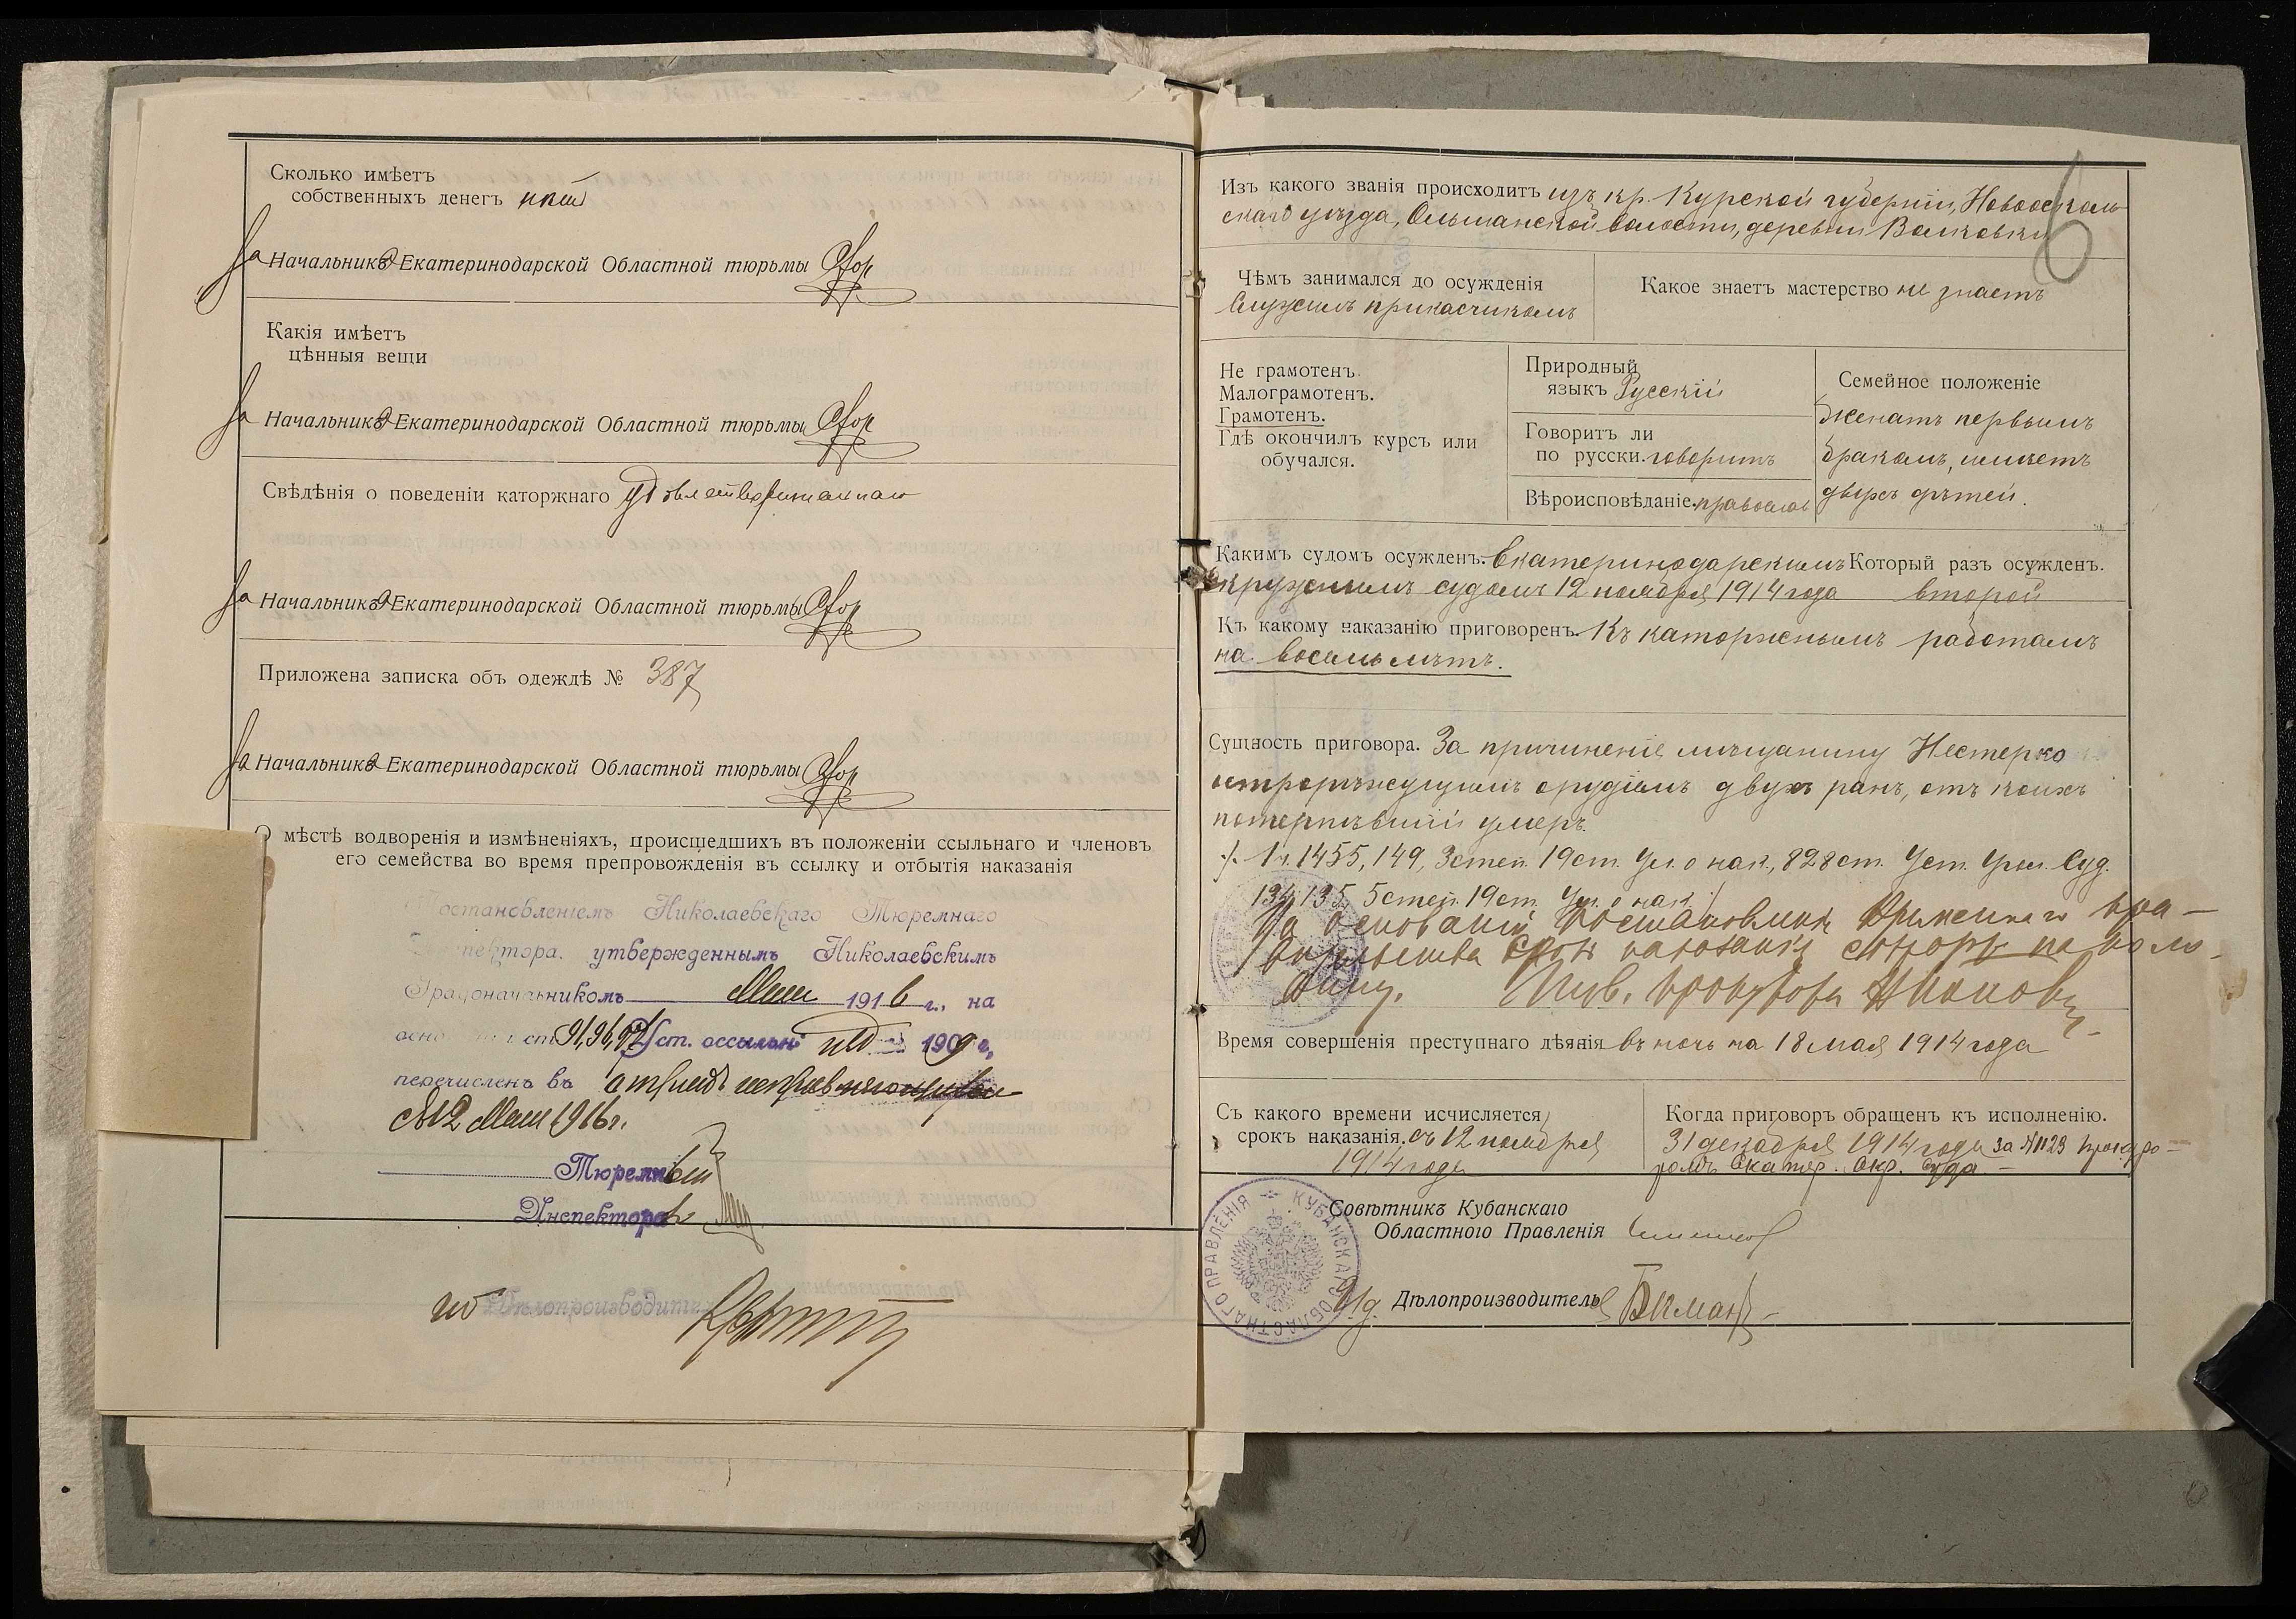 Сколько имѣетъ
собственныхъ денегъ нѣтъ
За Начальника Екатеринодарской Областной тюрьмы
Какія имѣетъ
цѣнныя вещи
За Начальника Екатеринодарской Областной тюрьмы
Свѣдѣнія о поведеніи каторжнаго удовлетворительнаго
За Начальника Екатеринодарской Областной тюрьмы
Приложена записка объ одеждѣ № 387
За Начальника Екатеринодарской Областной тюрьмы
О мѣстѣ водворенія и измѣненіяхъ, происшедшихъ въ положеніи ссыльнаго и членовъ
его семейства во время препровожденія въ ссылку и отбытія наказанія
Постановленіемъ Николаевскаго Тюремнаго
Инспектора, утвержденнымъ Николаевскимъ
Градоначальникомъ Мая 1916 г., на
ст. Уст. о ссыльн. изд. 1909 г.,
перечисленъ въ отрядъ исправляющихся
съ 12 Мая 1916 г.
Тюремный
Инспекторъ
Дѣлопроизводитель
6
Изъ какого званія происходитъ изъ кр. Курской губерніи, Новоосколь-
скаго уѣзда, Ольшанской волости, деревни Волковки
Чѣмъ занимался до осужденія
Служилъ приказчикомъ
Какое знаетъ мастерство не знаетъ
Не грамотенъ.
Малограмотенъ.
Грамотенъ.
Гдѣ окончилъ курсъ или
обучался.
Природный
языкъ Русскій
Говоритъ ли
по русски. говоритъ
Вѣроисповѣданіе. православ
Семейное положеніе
Женатъ первымъ
бракомъ, имѣетъ
двухъ дѣтей.
Какимъ судомъ осужденъ. Екатеринодарскимъ
окружнымъ судомъ 12 ноября 1914 года
Который разъ осужденъ.
второй
Къ какому наказанію приговоренъ. Къ каторжнымъ работамъ
на восемь лѣтъ.
Сущность приговора. За причиненіе мѣщанину Нестерко
острорѣжущимъ орудіемъ двухъ ранъ, отъ коихъ
потерпѣвшій умеръ.
1 ч. 1455, 149, 3 степ. 19 ст. Ул. о нак., 828 ст. Уст. Угол. Суд.
134, 135, 5 степ. 19 ст. Ул. о нак.
На основаніи постановленія Временнаго Пра-
вительства срокъ наказанія сокращ на поло-
вину.
Время совершенія преступнаго дѣянія въ ночь на 18 мая 1914 года
Съ какого времени исчисляется
срокъ наказанія. съ 12 ноября
1914 года
Когда приговоръ обращенъ къ исполненію.
31 декабря 1914 года за № 1123 прокуро-
ромъ Екатер. Окр. Суда
Совѣтникъ Кубанскаго
Областного Правленія
КУБАНСКАГО ОБЛАСТНАГО ПРАВЛЕНІЯ
И.д. Дѣлопроизводителя